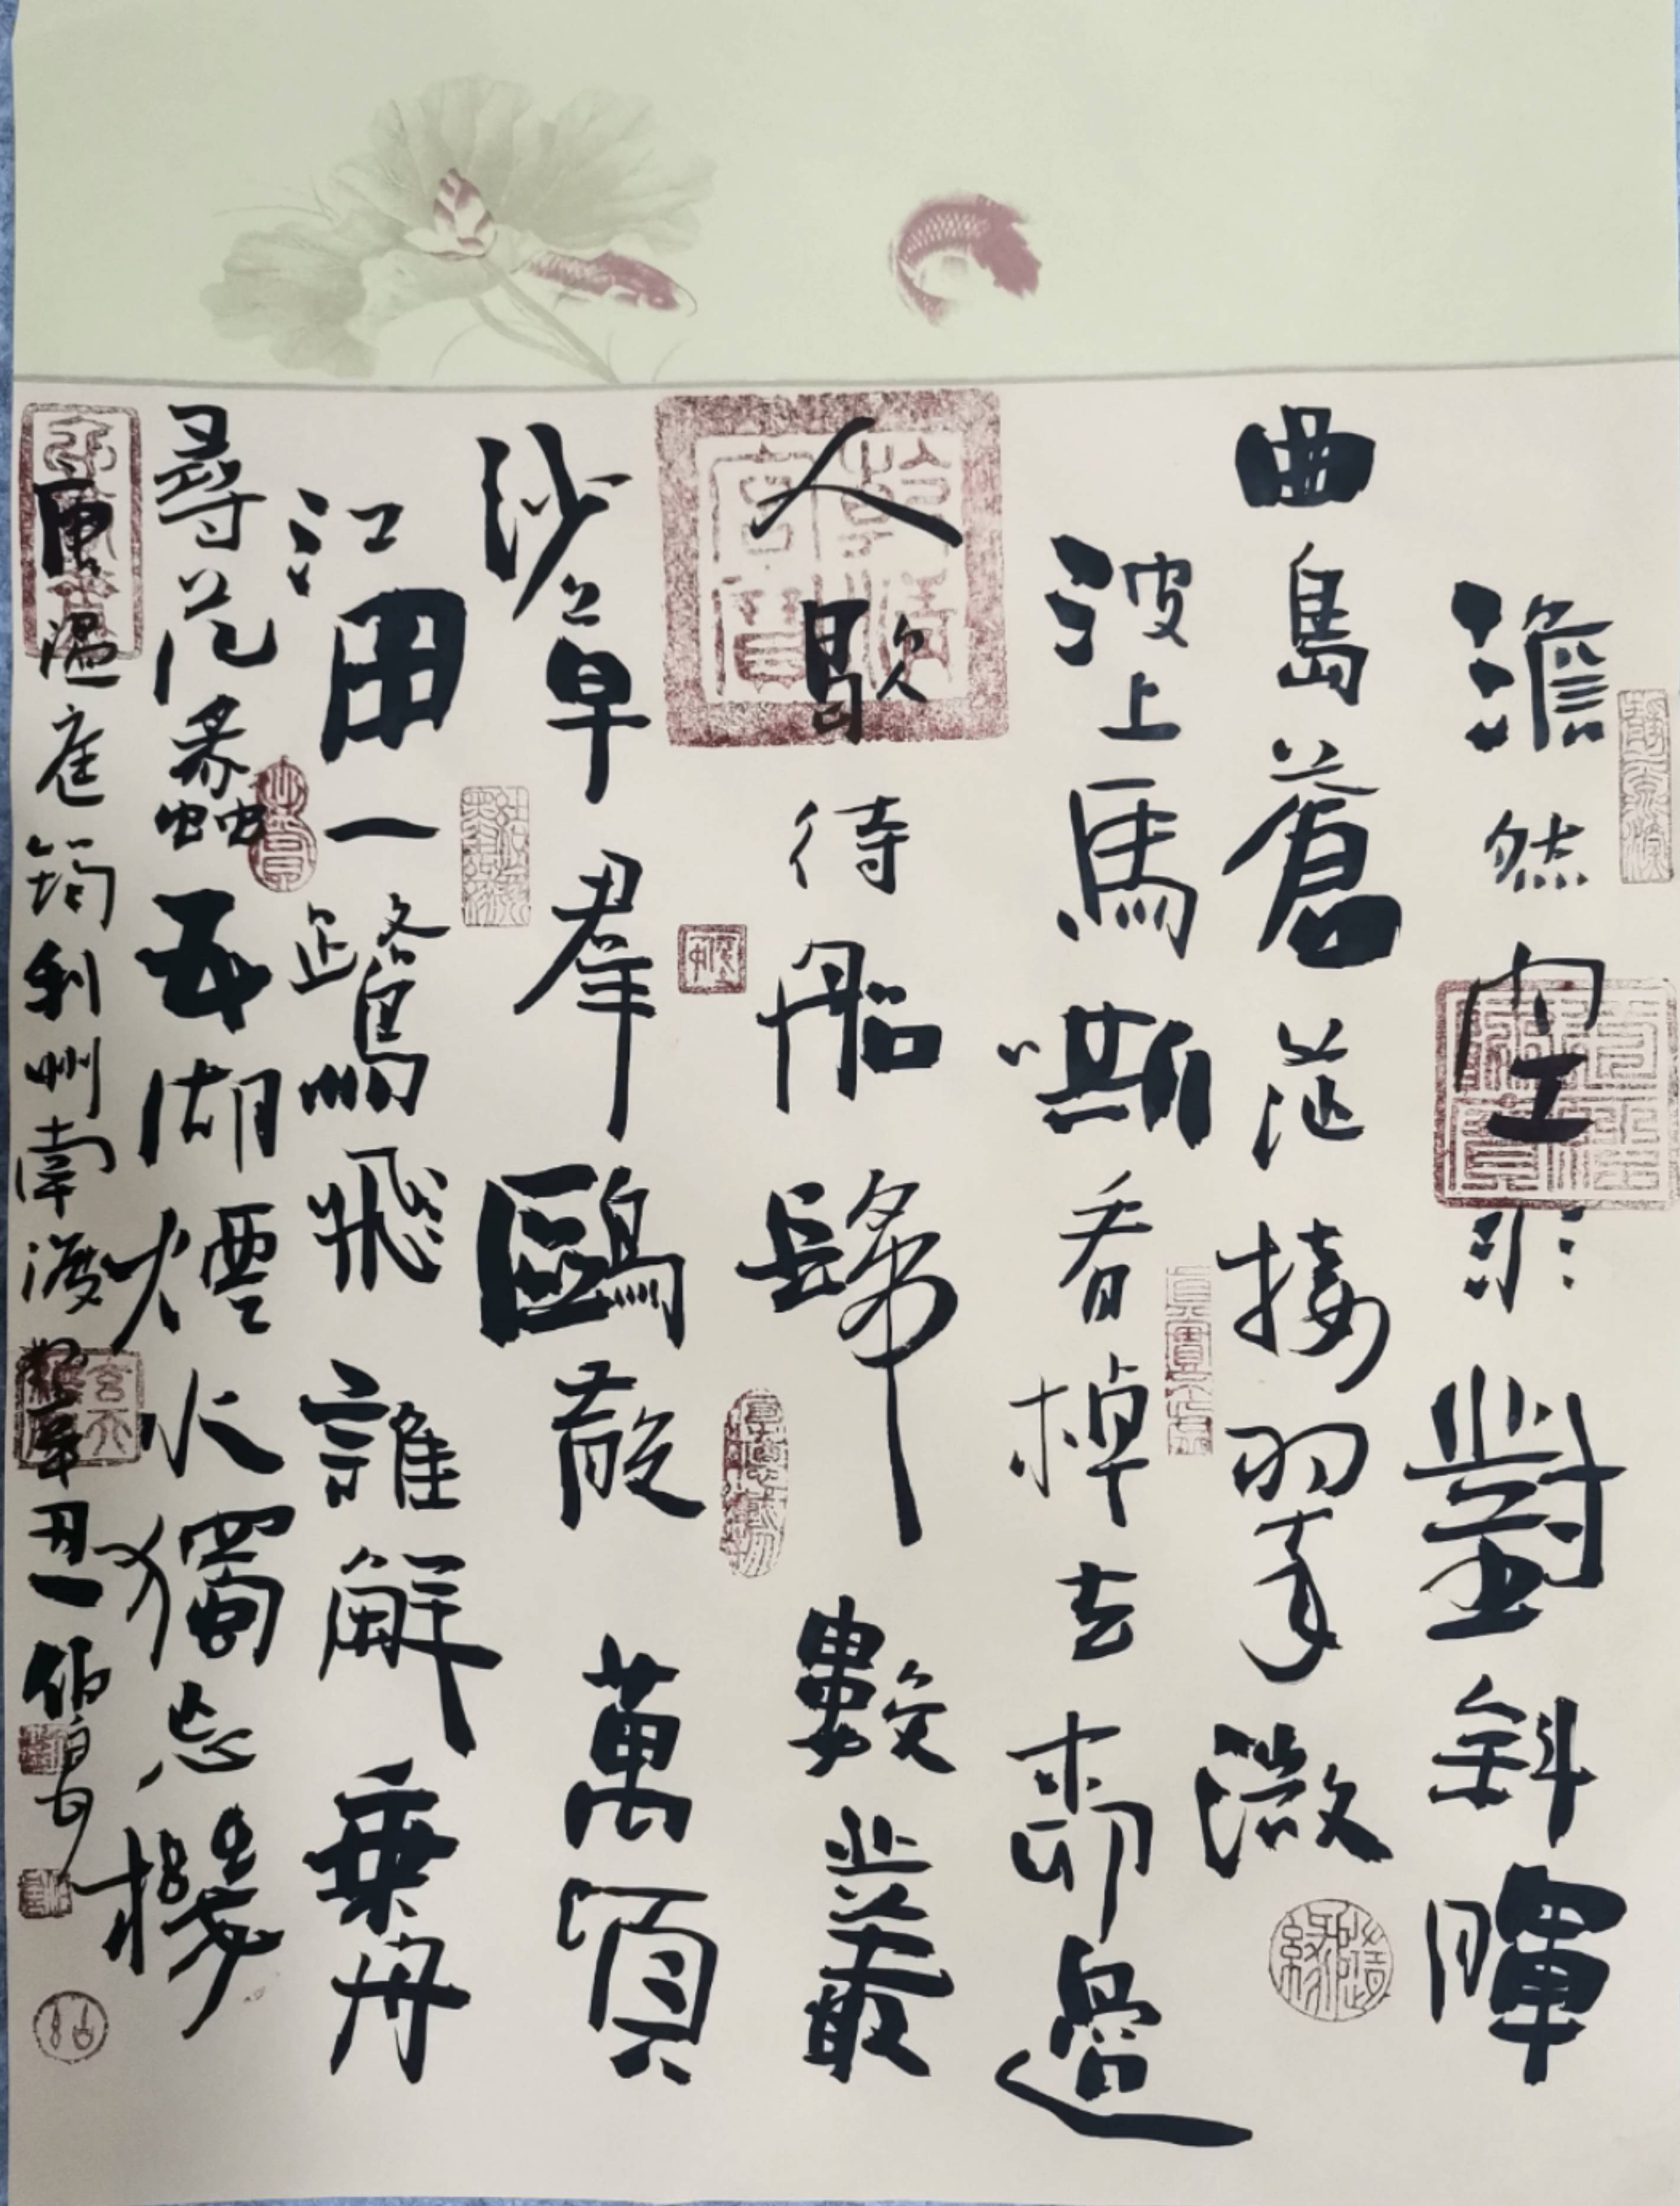 澹然空水對斜暉
曲島蒼茫接翠微
波上馬嘶看棹去柳邊
人歇待船歸數叢
沙草羣鷗散萬頃
江田一鷺飛誰解乘舟
尋范蠡五湖煙水獨忘機
唐溫庭筠利州南渡辛丑一
厚德載物